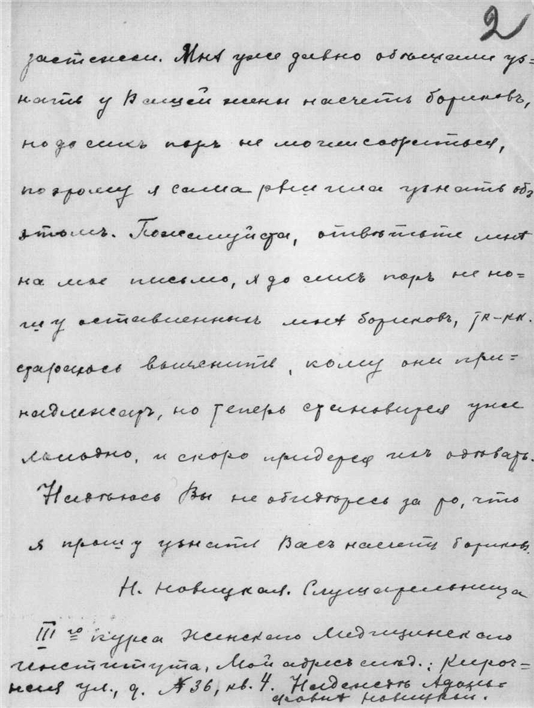 2
застежки. Мнѣ уже давно обѣщали уз-
нать у Вашей жены насчетъ ботиковъ,
но до сихъ поръ не могли собраться,
поэтому я сама рѣшила узнать объ
этомъ. Пожалуйста, отвѣтьте мнѣ
на мое письмо, я до сихъ поръ не но-
шу оставленныхъ мнѣ ботиковъ, т-къ.
стараюсь выяснить, кому они при-
надлежатъ, но теперь становится уже
холодно, и скоро придется ихъ одѣвать.
Надѣюсь Вы не обидѣтесь за то, что
я прошу узнать Васъ насчетъ ботиковъ.
Н. Новицкая. Слушательница
IIIго курса Женскаго Медицинскаго
Института, Мой адресъ слѣд.: Кироч-
ная ул., д. №36, кв. 4. Надежда
Новицкой.